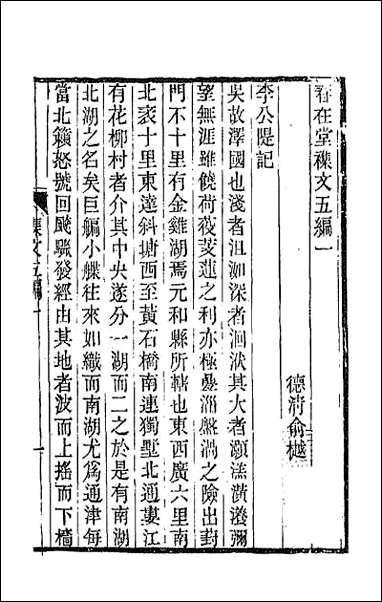 春在堂襍文五編一
德清俞樾
李公隄記
吳故澤國也淺者沮洳深者洄洑其大者灝溔潢瀁彌
望無涯雖饒荷芰菱蓮之利亦極㬥淈盤渦之險出葑
門不十里有金雞湖焉元和縣所轄也東西廣六里南
北袤十里東達斜塘西至黃石橋南連獨墅北通婁江
有花柳村者介其中央遂分一湖而二之於是有南湖
北湖之名矣巨艑小艓往來如織而南湖尤爲通津每
當北籟怒號回飇驟發經由其地者波而上搖而下檣
襍文五編一
一